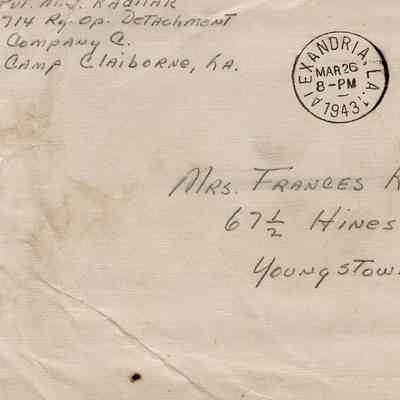 Pvt. M. J.
714 Ry. Op. Detachment
Company C.
Camp Claiborne, La.
ALEXANDRIA, LA. 1
MAR 26
8-PM
1943
Mrs. Frances
67 1/2 Hines
Youngstow